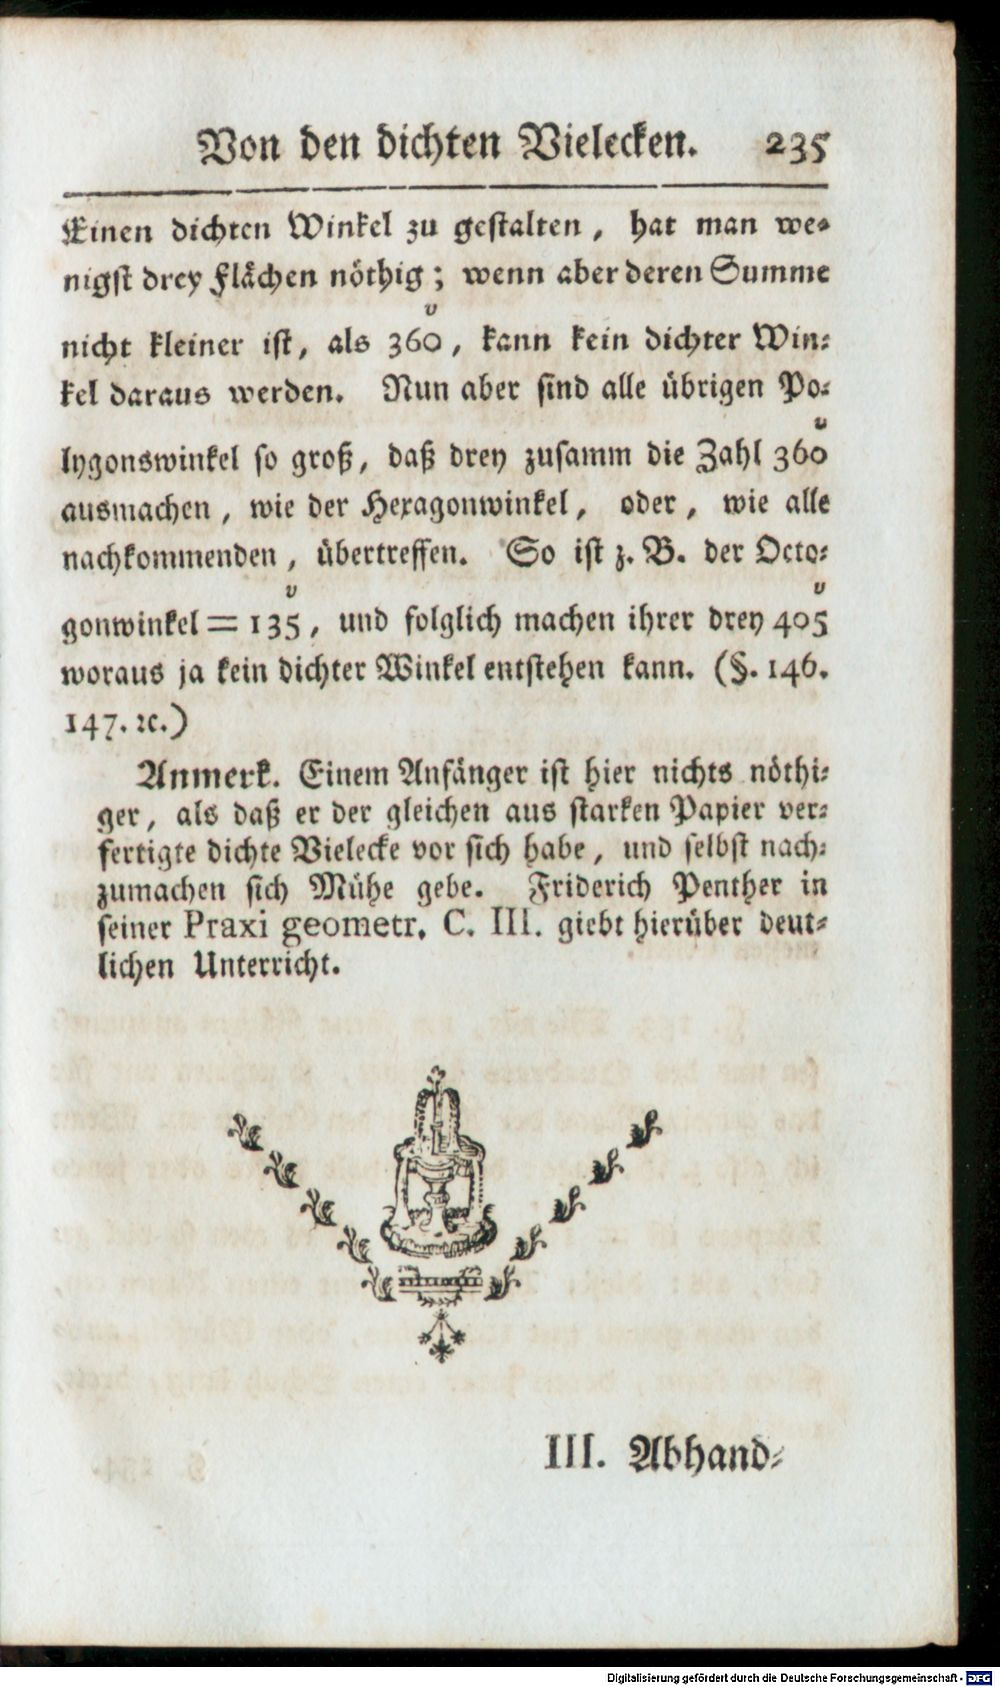 Von den dichten Vielecken. 235
Einen dichten Winkel zu gestalten, hat man we-
nigst drey Flächen nöthig; wenn aber deren Summe
nicht kleiner ist, als 360°, kann kein dichter Win-
kel daraus werden. Nun aber sind alle übrigen Po-
lygonswinkel so groß, daß drey zusamm die Zahl 360°
ausmachen, wie der Hexagonwinkel, oder, wie alle
nachkommenden, übertreffen. So ist z. B. der Octo-
gonwinkel = 135°, und folglich machen ihrer drey 405°
woraus ja kein dichter Winkel entstehen kann. (§. 146.
147. ꝛc.)
Anmerk. Einem Anfänger ist hier nichts nöthi-
ger, als daß er der gleichen aus starken Papier ver-
fertigte dichte Vielecke vor sich habe, und selbst nach-
zumachen sich Mühe gebe. Friderich Penther in
seiner Praxi geometr. C. III. giebt hierüber deut-
lichen Unterricht.
III. Abhand-
Digitalisierung gefördert durch die Deutsche Forschungsgemeinschaft - DFG